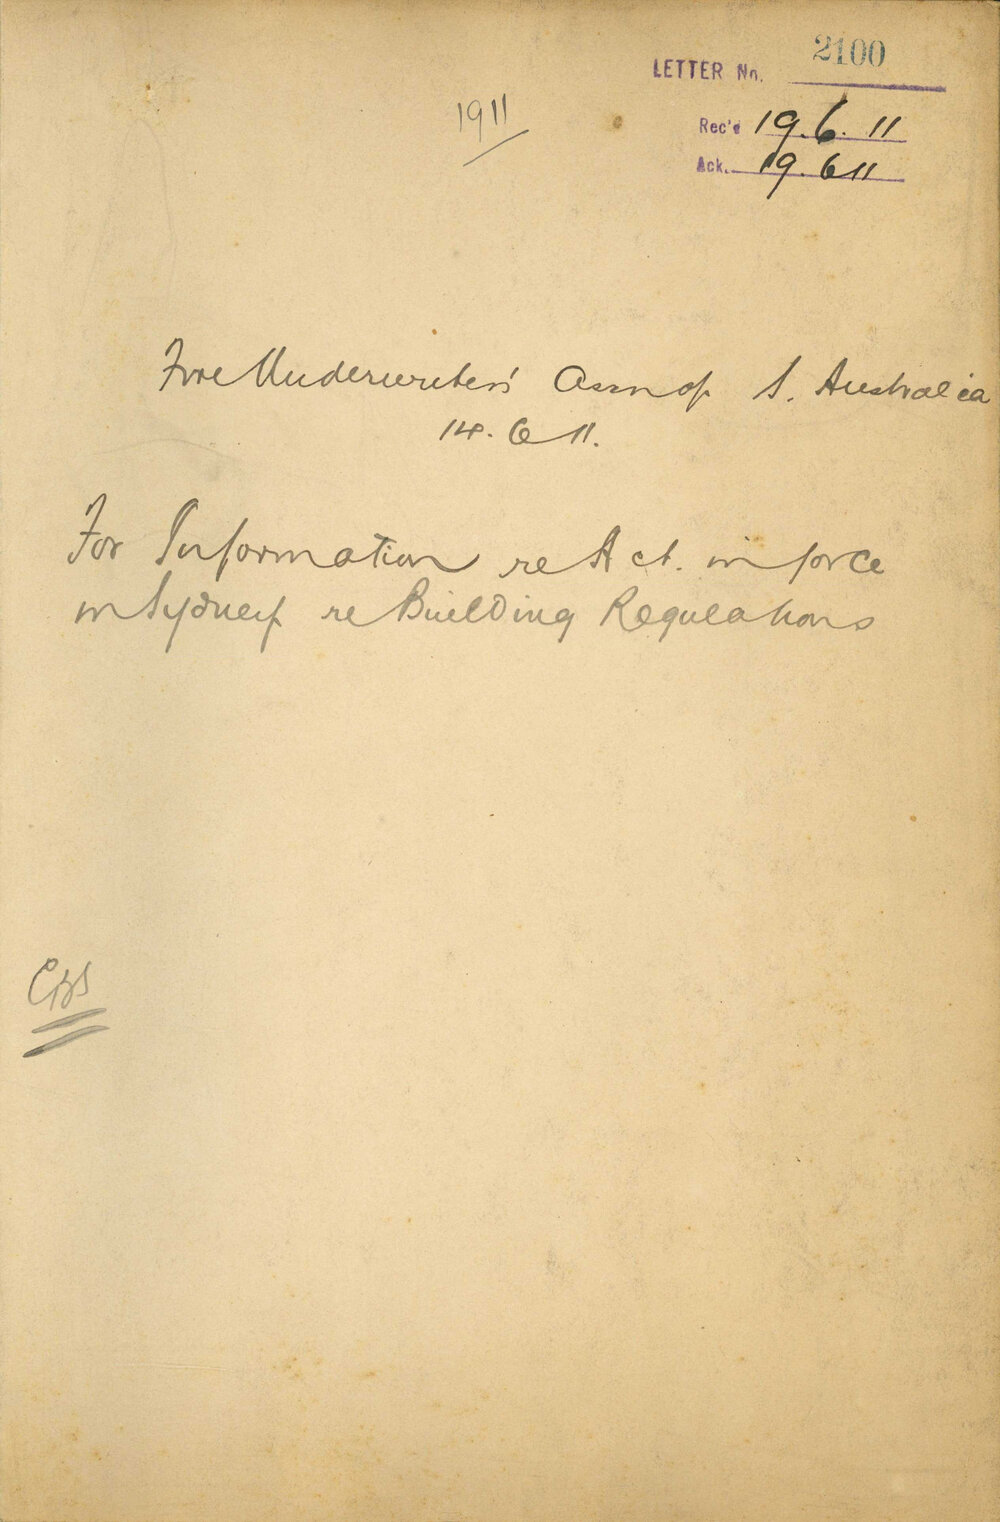 2100
LETTER No.
1911
Rec'd 19.6.11
Ack. 19.611
Fire Underwriters' Assn of S. Australia
14.6 11.
For Information re Act. in force
in Sydney re Building Regulations
CBS